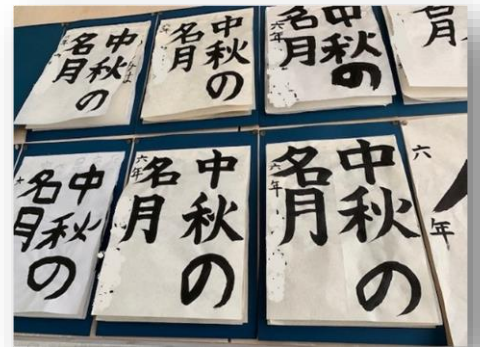 中秋の
名月
中秋の
名月
中秋の
名月
六年
名月
中秋の
名月
中秋の
名月
六年
中秋の
名月
六年
六年